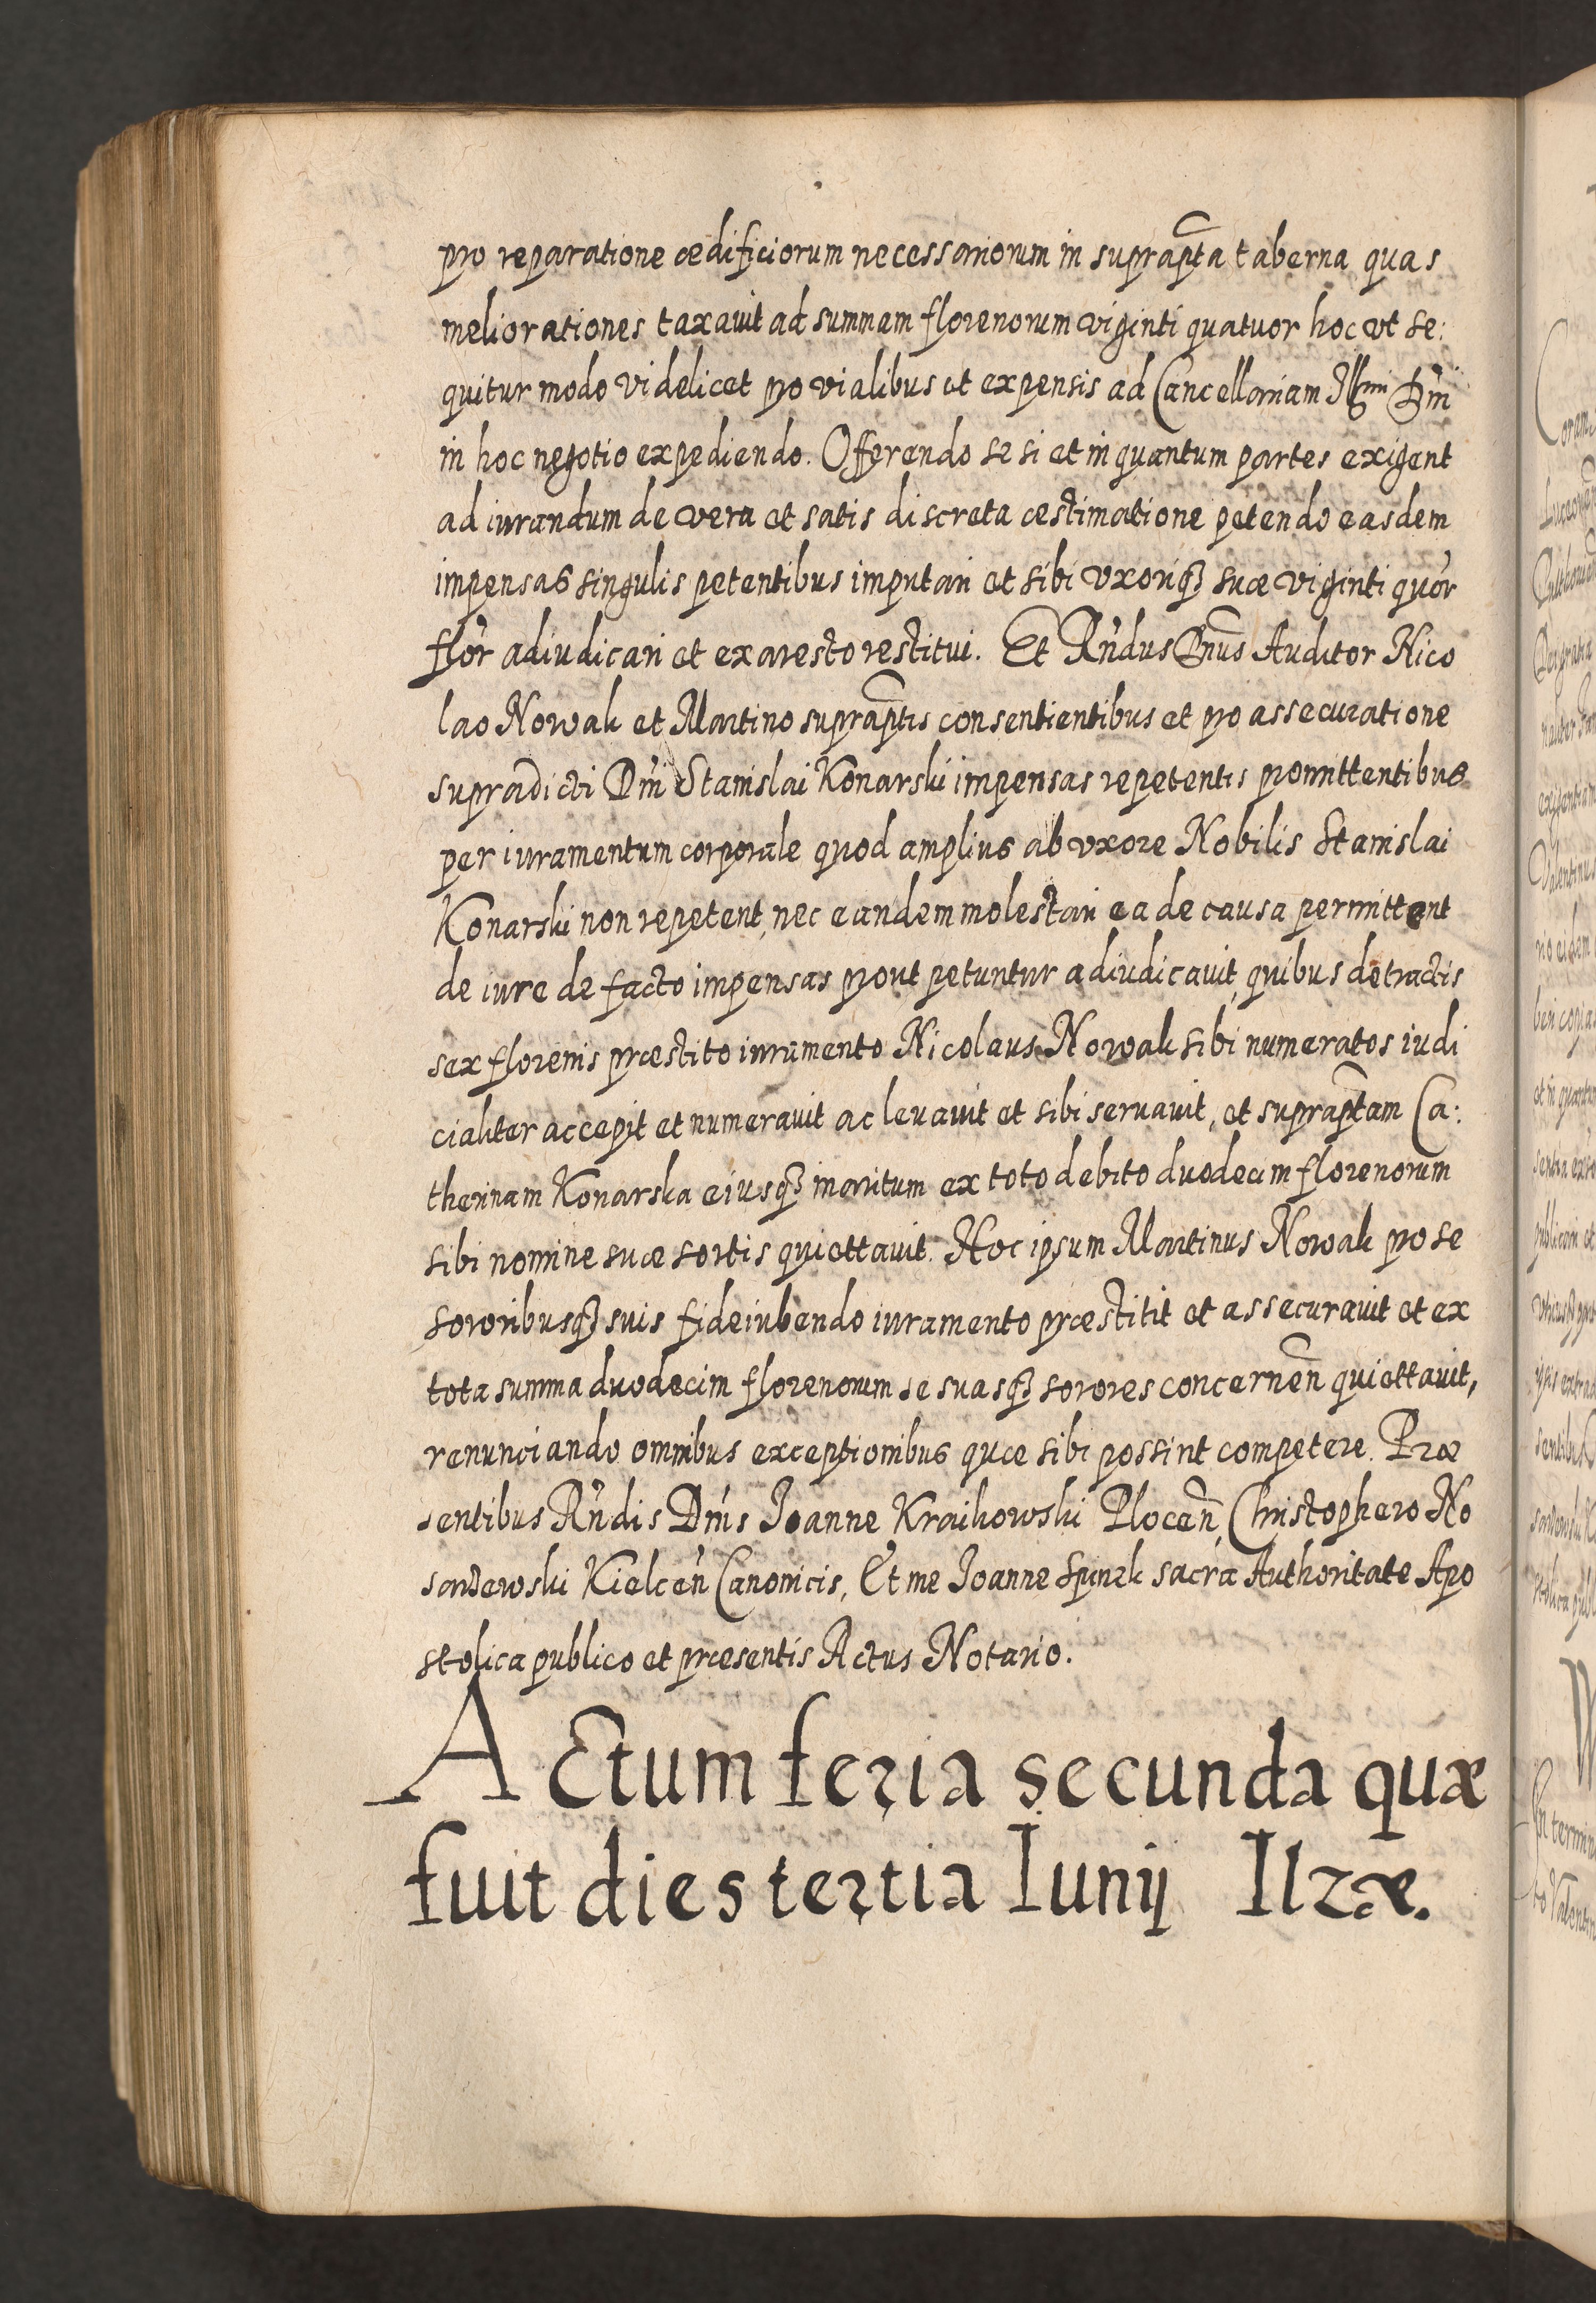 pro reparatione ædificiorum necessariorum in suprap̃ta taberna quas
meliorationes taxauit ad summam florenorum viginti quatuor hoc vt se:
quitur modo videlicet pro vialibus et expensis ad Cancellariam Illmi Dni
in hoc negotio expediendo. Offerendo se si et in quantum partes exigent
ad iurandum de vera et satis discreta æstimatione petendo easdem
impensas singulis petentibus imputari et sibi vxoriq3 suæ viginti quor
flor adiudicari et ex aresto restitui. Et Rndus Dnus Auditor Nico
lao Nowak et Martino suprap̃tis consentientibus et pro assecuratione
supradicti Dni Stanislai Konarski impensas repetentis promittentibus
per iuramentum corporale quod amplius ab vxore Nobilis Stanislai
Konarski non repetent, nec eandem molestari ea de causa permittent
de iure de facto impensas prout petuntur adiudicauit, quibus detractis
sex florenis præstito iuramento Nicolaus Nowak sibi numeratos iudi
cialiter accepit et numerauit ac leuauit et sibi seruauit, et suprap̃tam Ca:
therinam Konarska eiusq3 maritum ex toto debito duodecim florenorum
sibi nomine suæ sortis quiettauit. Hoc ipsum Martinus Nowak pro se
sororibusq3 suis fideiubendo iuramento præstitit et assecurauit et ex
tota summa duodecim florenorum se suasq3 sorores concernen̄ quiettauit,
renunciando omnibus exceptionibus quæ sibi possint competere. Præ
sentibus Rndis Dnis Joanne Kraikowski Plocen̄, Christophero No
sardewski Kielcen̄ Canonicis, Et me Joanne Spinek sacra Authoritate Apo
stolica publico et præsentis Actus Notario.
ACtum feria secunda quæ
fuit dies tertia Iunij Ilzæ.